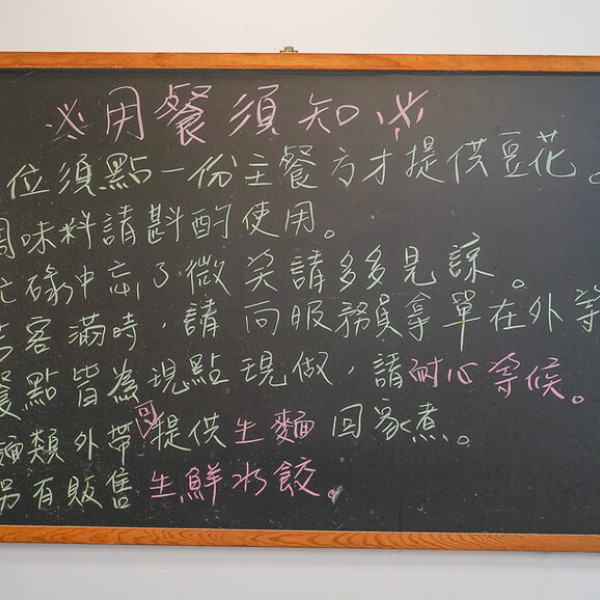 ※用餐須知※
位須點一份主餐方才提供豆花。
調味料請斟酌使用。
忙碌中忘了微笑請多多見諒。
客滿時，請向服務員拿單在外等
餐點皆為現點現做，請耐心等候。
麵類外帶可提供生麵回家煮。
另有販售生鮮水餃。